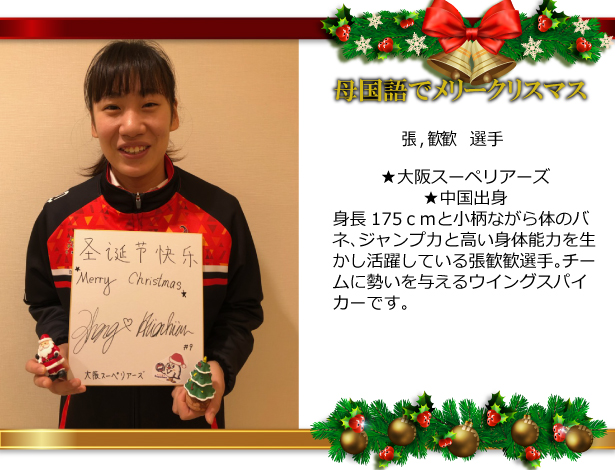 母国語でメリークリスマス
張，歓歓　選手
★大阪スーペリアーズ
★中国出身
身長 175ｃｍと小柄ながら体のバ
ネ、ジャンプ力と高い身体能力を生
かし活躍している張歓歓選手。チー
ムに勢いを与えるウイングスパイ
カーです。
圣诞节快乐
★Merry Christmas★
#9
大阪スーペリアーズ